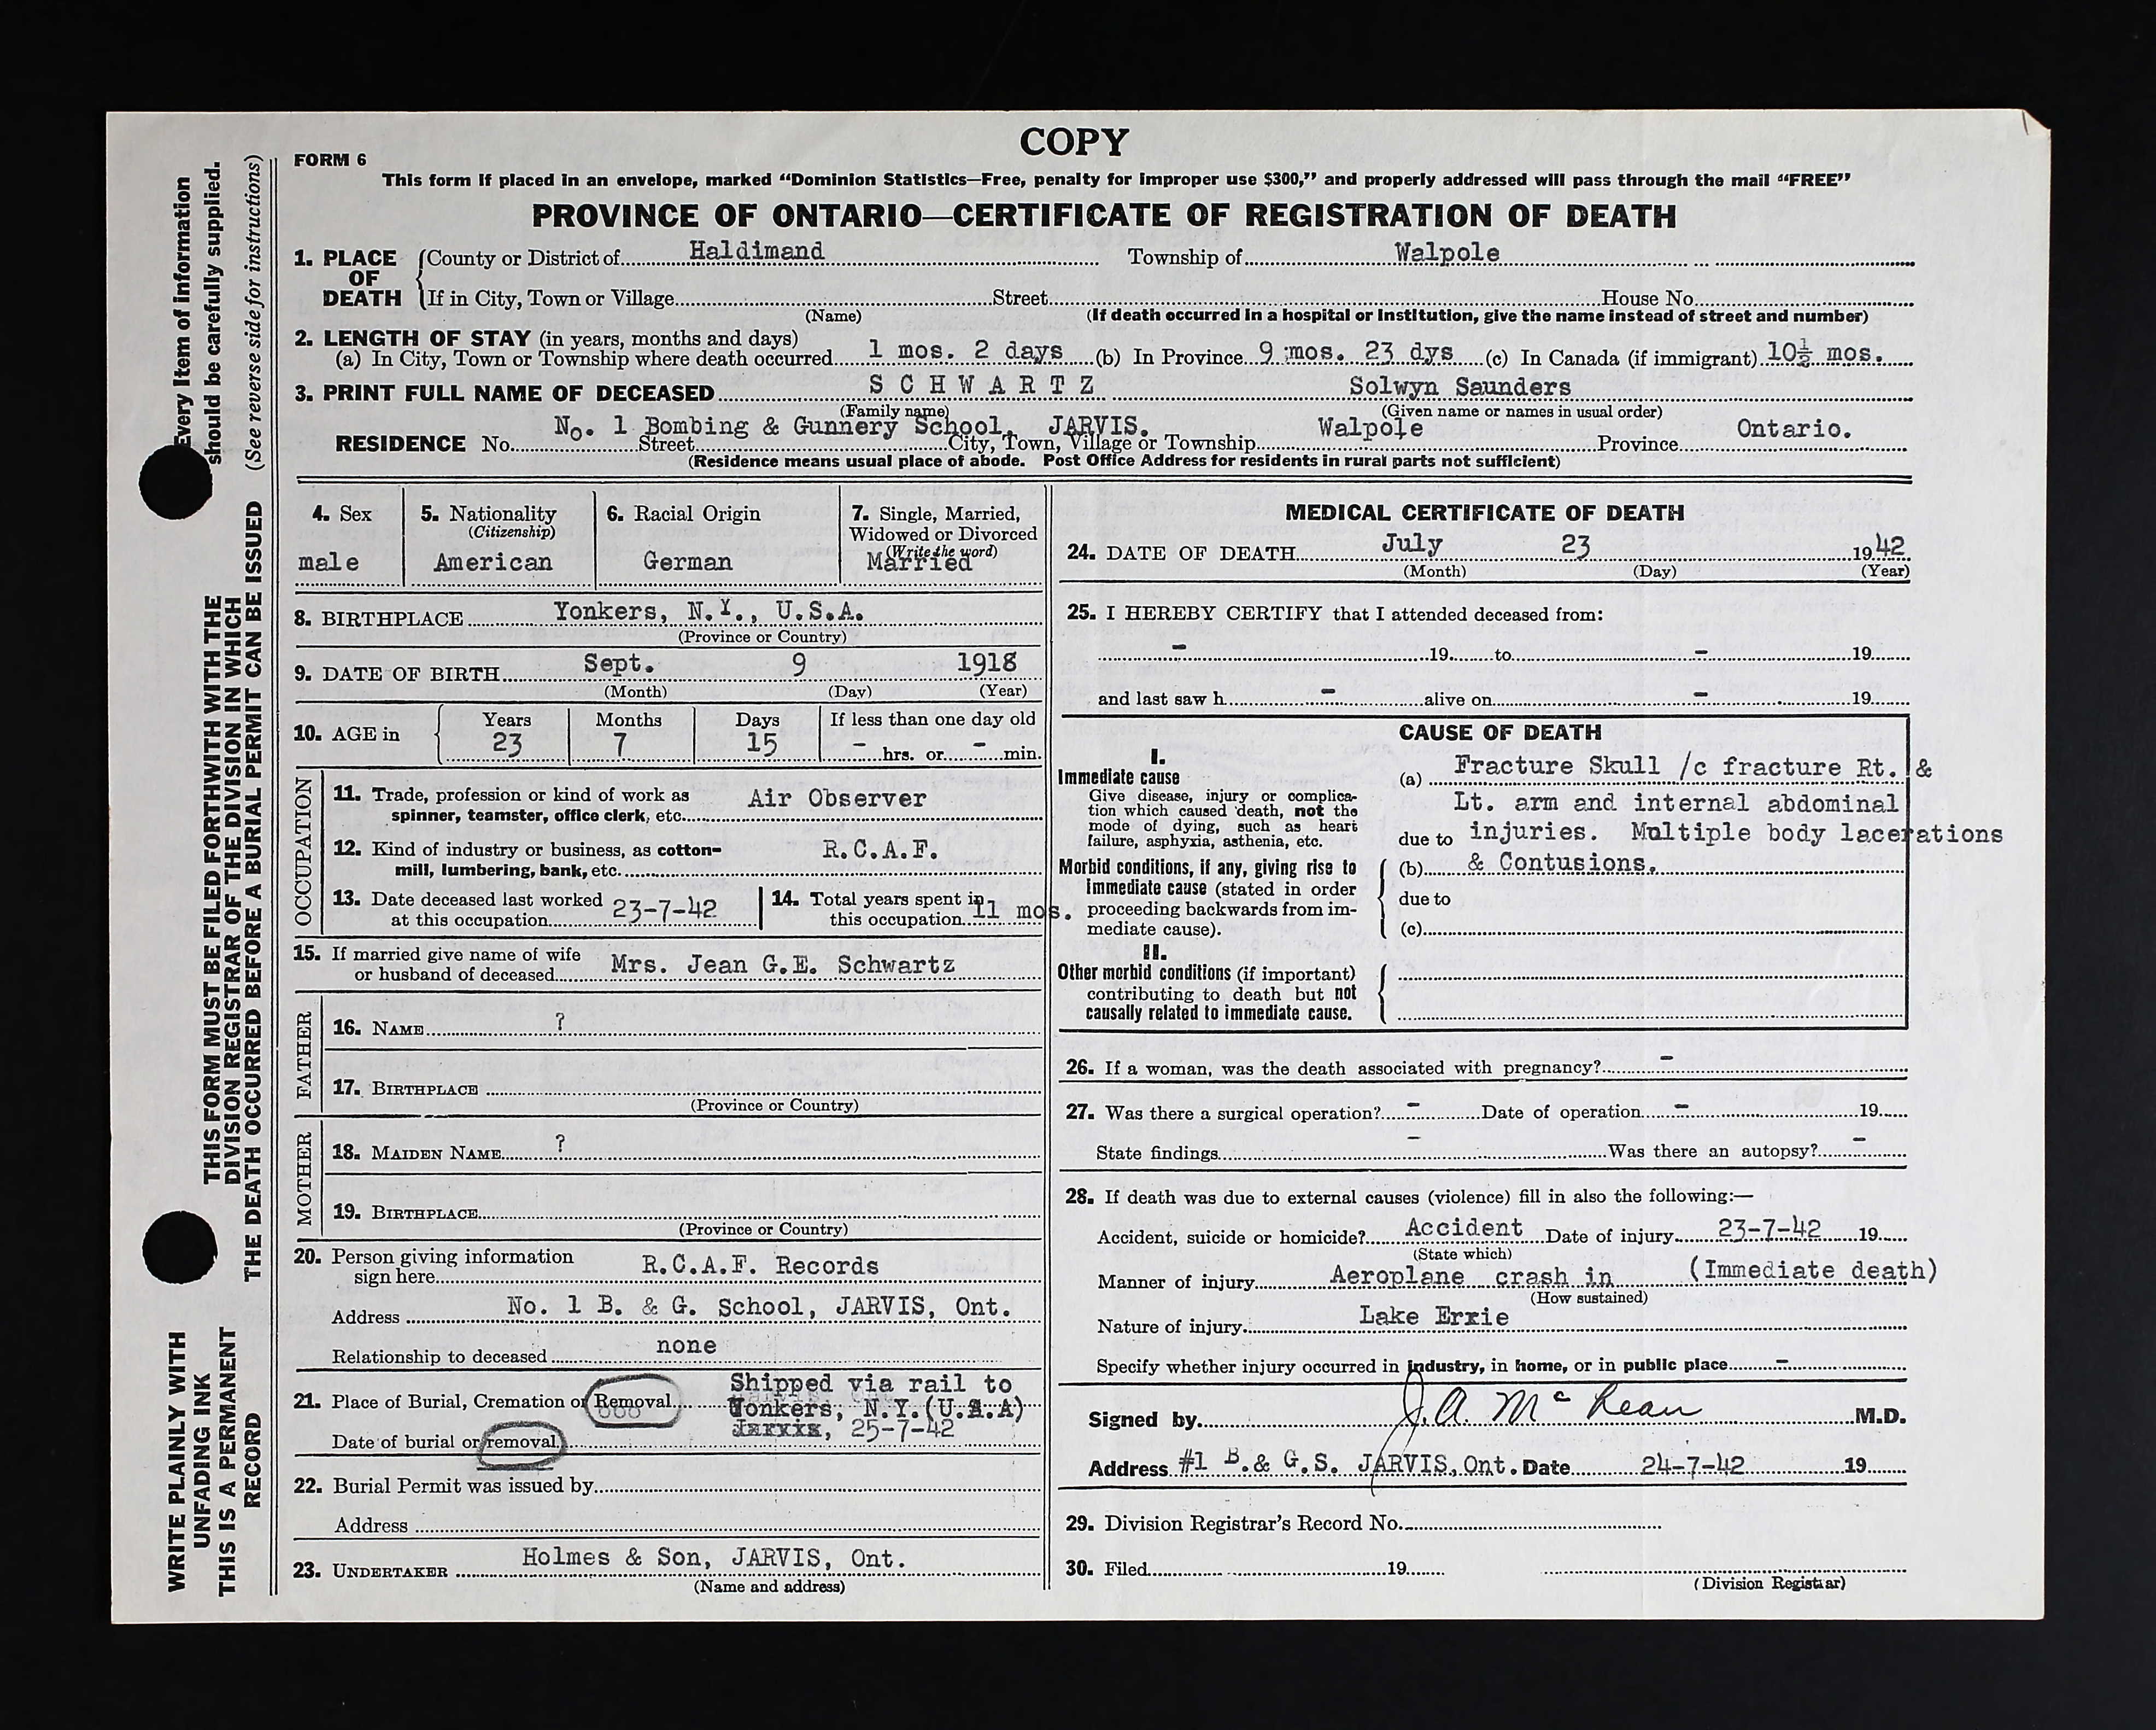 COPY
FORM 6
This form if placed in an envelope, marked “Dominion Statistics—Free, penalty for improper use $300,” and properly addressed will pass through the mail “FREE”
PROVINCE OF ONTARIO—CERTIFICATE OF REGISTRATION OF DEATH
1. PLACE OF DEATH { County or District of Haldimand Township of Walpole
If in City, Town or Village Street House No.
(Name) (If death occurred in a hospital or institution, give the name instead of street and number)
2. LENGTH OF STAY (in years, months and days)
(a) In City, Town or Township where death occurred 1 mos. 2 days (b) In Province 9 mos. 23 dys (c) In Canada (if immigrant) 10½ mos.
3. PRINT FULL NAME OF DECEASED S C H W A R T Z Solwyn Saunders
(Family name) (Given name or names in usual order)
No. 1 Bombing & Gunnery School, JARVIS. Walpole Ontario.
RESIDENCE No. Street City, Town, Village or Township Province
(Residence means usual place of abode. Post Office Address for residents in rural parts not sufficient)
4. Sex
male
5. Nationality
(Citizenship)
American
6. Racial Origin
German
7. Single, Married,
Widowed or Divorced
(Write the word)
Married
8. BIRTHPLACE Yonkers, N.Y., U.S.A.
(Province or Country)
9. DATE OF BIRTH Sept. 9 1918
(Month) (Day) (Year)
10. AGE in Years Months Days If less than one day old
23 7 15 - hrs. or - min.
OCCUPATION
11. Trade, profession or kind of work as Air Observer
spinner, teamster, office clerk, etc.
12. Kind of industry or business, as cotton- R.C.A.F.
mill, lumbering, bank, etc.
13. Date deceased last worked
at this occupation 23-7-42
14. Total years spent in
this occupation 11 mos.
15. If married give name of wife
or husband of deceased Mrs. Jean G.E. Schwartz
FATHER
16. NAME ?
17. BIRTHPLACE
(Province or Country)
MOTHER
18. MAIDEN NAME ?
19. BIRTHPLACE
(Province or Country)
20. Person giving information
sign here R.C.A.F. Records
Address No. 1 B. & G. School, JARVIS, Ont.
Relationship to deceased none
21. Place of Burial, Cremation or Removal Shipped via rail to
Yonkers, N.Y.(U.S.A)
Date of burial or removal Jarvis, 25-7-42
22. Burial Permit was issued by
Address
23. UNDERTAKER Holmes & Son, JARVIS, Ont.
(Name and address)
MEDICAL CERTIFICATE OF DEATH
24. DATE OF DEATH July 23 1942
(Month) (Day) (Year)
25. I HEREBY CERTIFY that I attended deceased from:
- 19 to - 19
and last saw h - alive on - 19
CAUSE OF DEATH
I.
Immediate cause
Give disease, injury or complica-
tion which caused death, not the
mode of dying, such as heart
failure, asphyxia, asthenia, etc.
(a) Fracture Skull /c fracture Rt. &
Lt. arm and internal abdominal
due to injuries. Multiple body lacerations
Morbid conditions, if any, giving rise to
immediate cause (stated in order
proceeding backwards from im-
mediate cause).
(b) & Contusions.
due to
(c)
II.
Other morbid conditions (if important)
contributing to death but not
causally related to immediate cause.
26. If a woman, was the death associated with pregnancy? -
27. Was there a surgical operation? - Date of operation - 19
State findings - Was there an autopsy? -
28. If death was due to external causes (violence) fill in also the following:—
Accident, suicide or homicide? Accident Date of injury 23-7-42 19
(State which)
Manner of injury Aeroplane crash in (Immediate death)
(How sustained)
Nature of injury Lake Errie
Specify whether injury occurred in industry, in home, or in public place -
Signed by J. A. McLean M.D.
Address #1 B.& G.S. JARVIS, Ont. Date 24-7-42 19
29. Division Registrar's Record No.
30. Filed 19
(Division Registrar)
Every Item of information
should be carefully supplied.
(See reverse side for instructions)
THIS FORM MUST BE FILED FORTHWITH WITH THE
DIVISION REGISTRAR OF THE DIVISION IN WHICH
THE DEATH OCCURRED BEFORE A BURIAL PERMIT CAN BE ISSUED
WRITE PLAINLY WITH
UNFADING INK
THIS IS A PERMANENT
RECORD